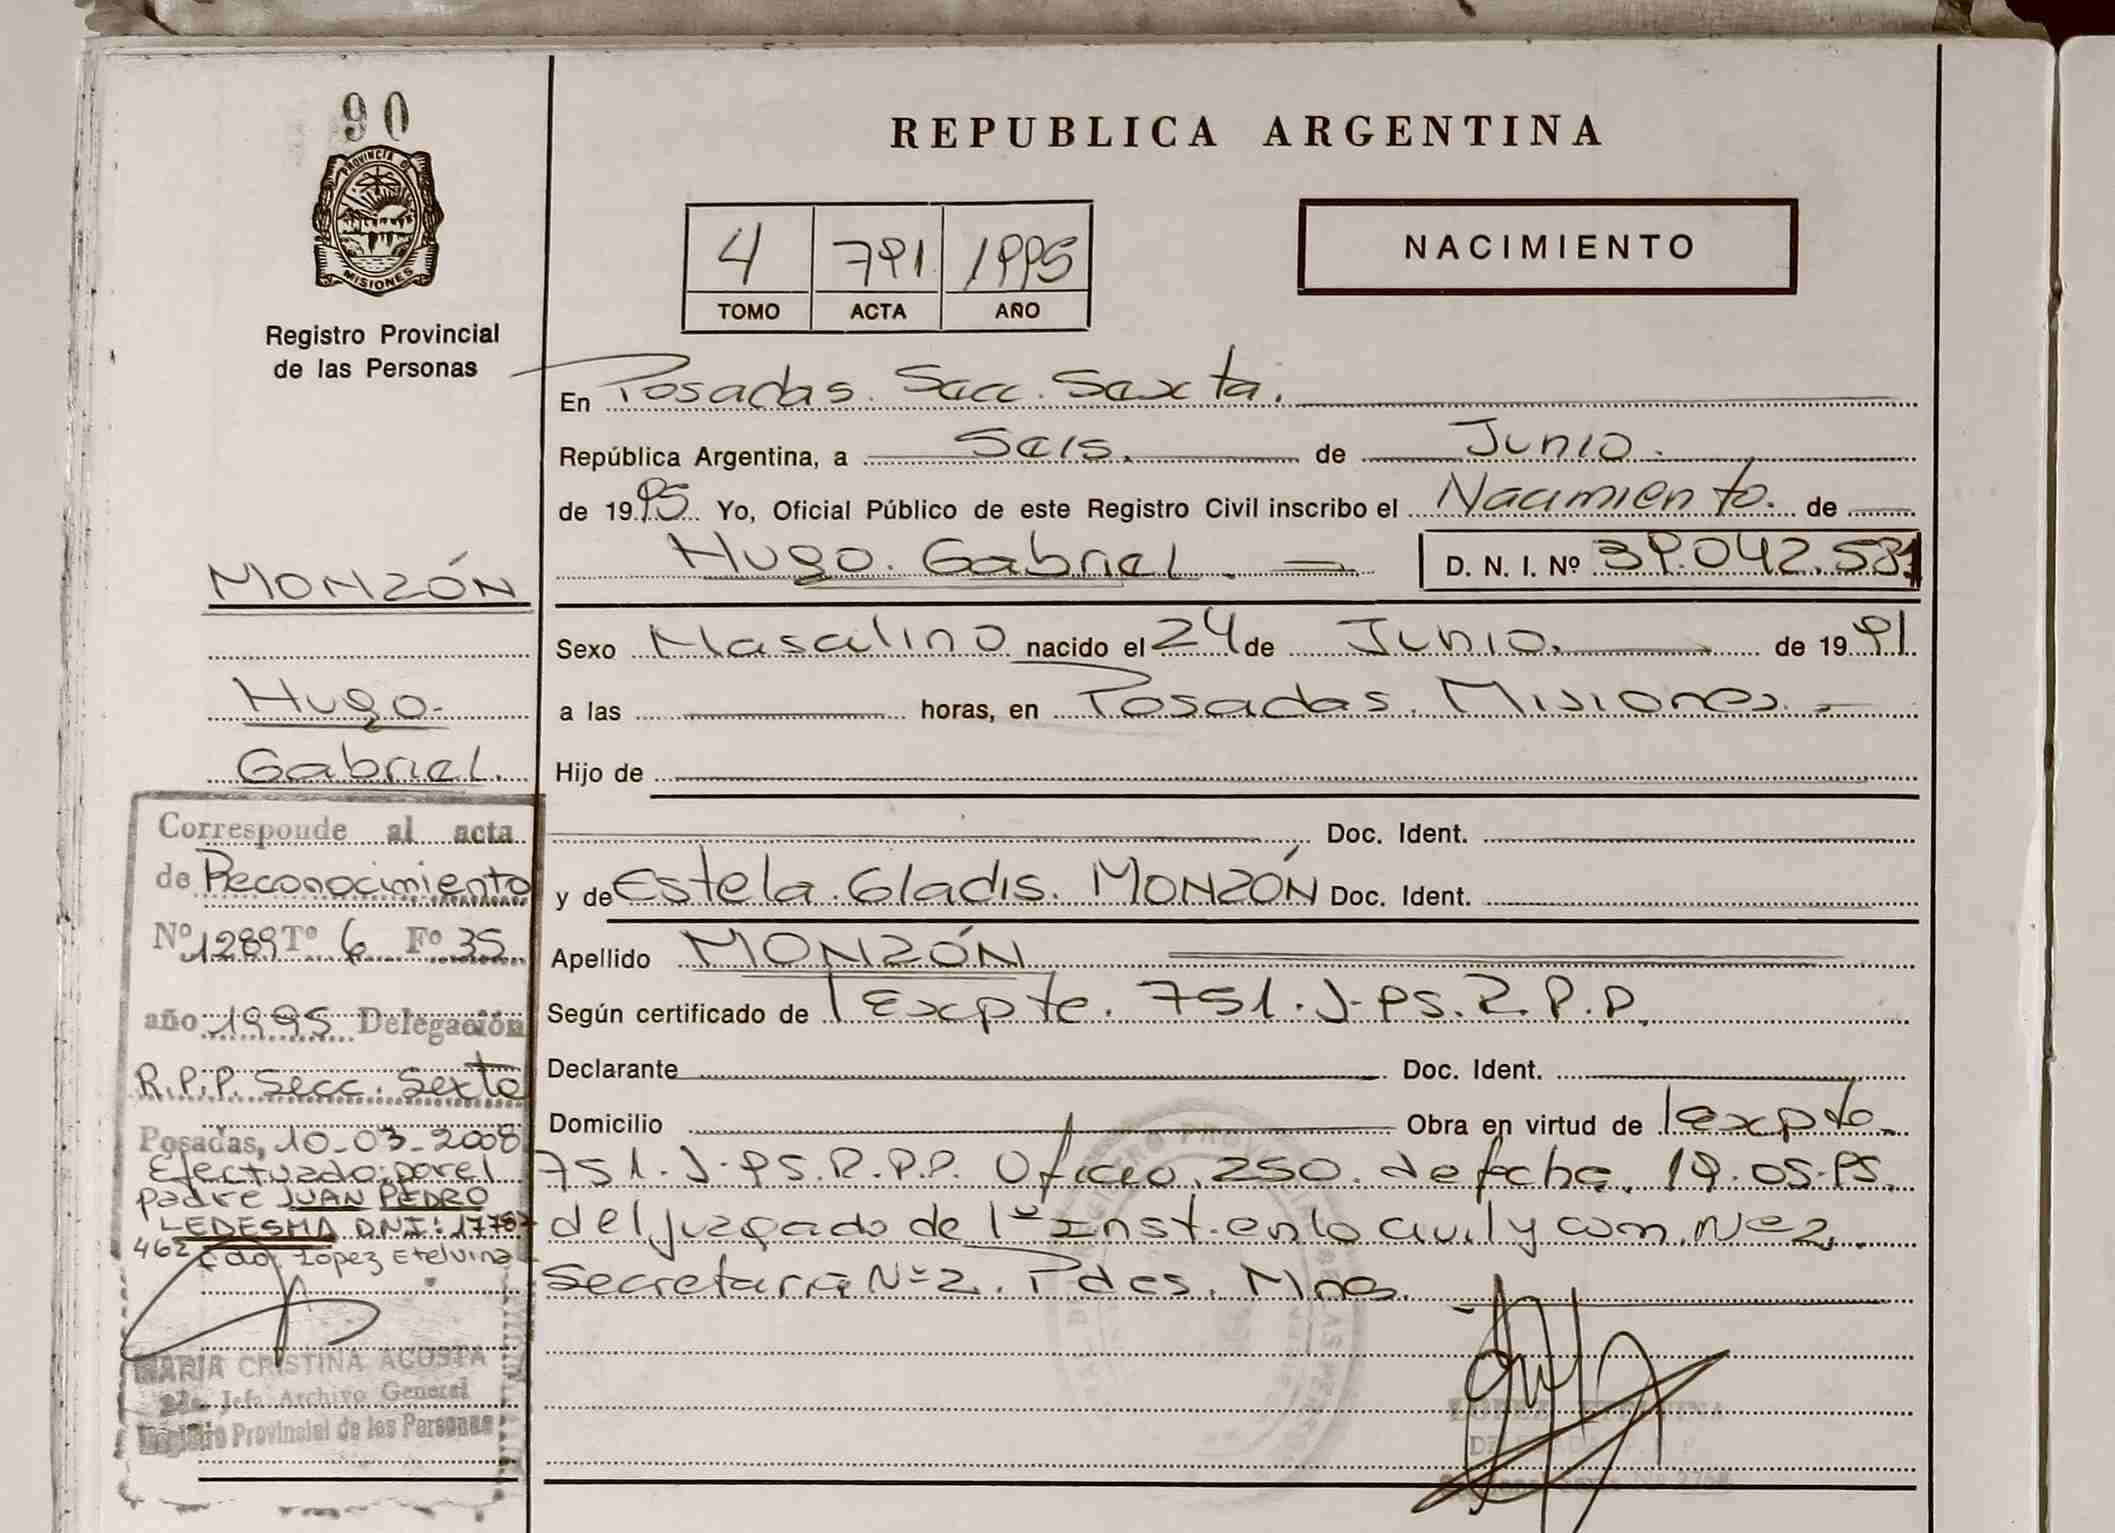 90
PROVINCIA DE
MISIONES
Registro Provincial
de las Personas
REPUBLICA ARGENTINA
4 791 1995
TOMO ACTA AÑO
NACIMIENTO
En Posadas. Secc. Sexta.
República Argentina, a Seis. de Junio.
de 1995. Yo, Oficial Público de este Registro Civil inscribo el Nacimiento. de
Hugo. Gabriel. D. N. I. Nº 39.042.581
Sexo Masculino nacido el 24 de Junio. de 1991
a las horas, en Posadas. Misiones.
Hijo de
Doc. Ident.
y de Estela. Gladis. MONZÓN Doc. Ident.
Apellido MONZÓN
Según certificado de Expte. 751. J-95. R.P.P.
Declarante Doc. Ident.
Domicilio Obra en virtud de expte.
751. J-95. R.P.P. Oficio. 250. de fecha. 19.05-95.
del juzgado de 1º Inst. en lo civil y com. Nº 2.
Secretaria Nº 2. Pdas. Mnes.
MONZÓN
Hugo.
Gabriel.
Corresponde al acta
de Reconocimiento
Nº 1289 Tº 6 Fº 35
año 1995 Delegación
R.P.P. Secc. Sexta
Posadas, 10-03-2008
Efectuado por el
padre JUAN PEDRO
LEDESMA DNI: 17787
462 Fdo. Lopez Etelvina
MARIA CRISTINA ACOSTA
Jefa Archivo General
Registro Provincial de las Personas
LOPEZ ETELVINA